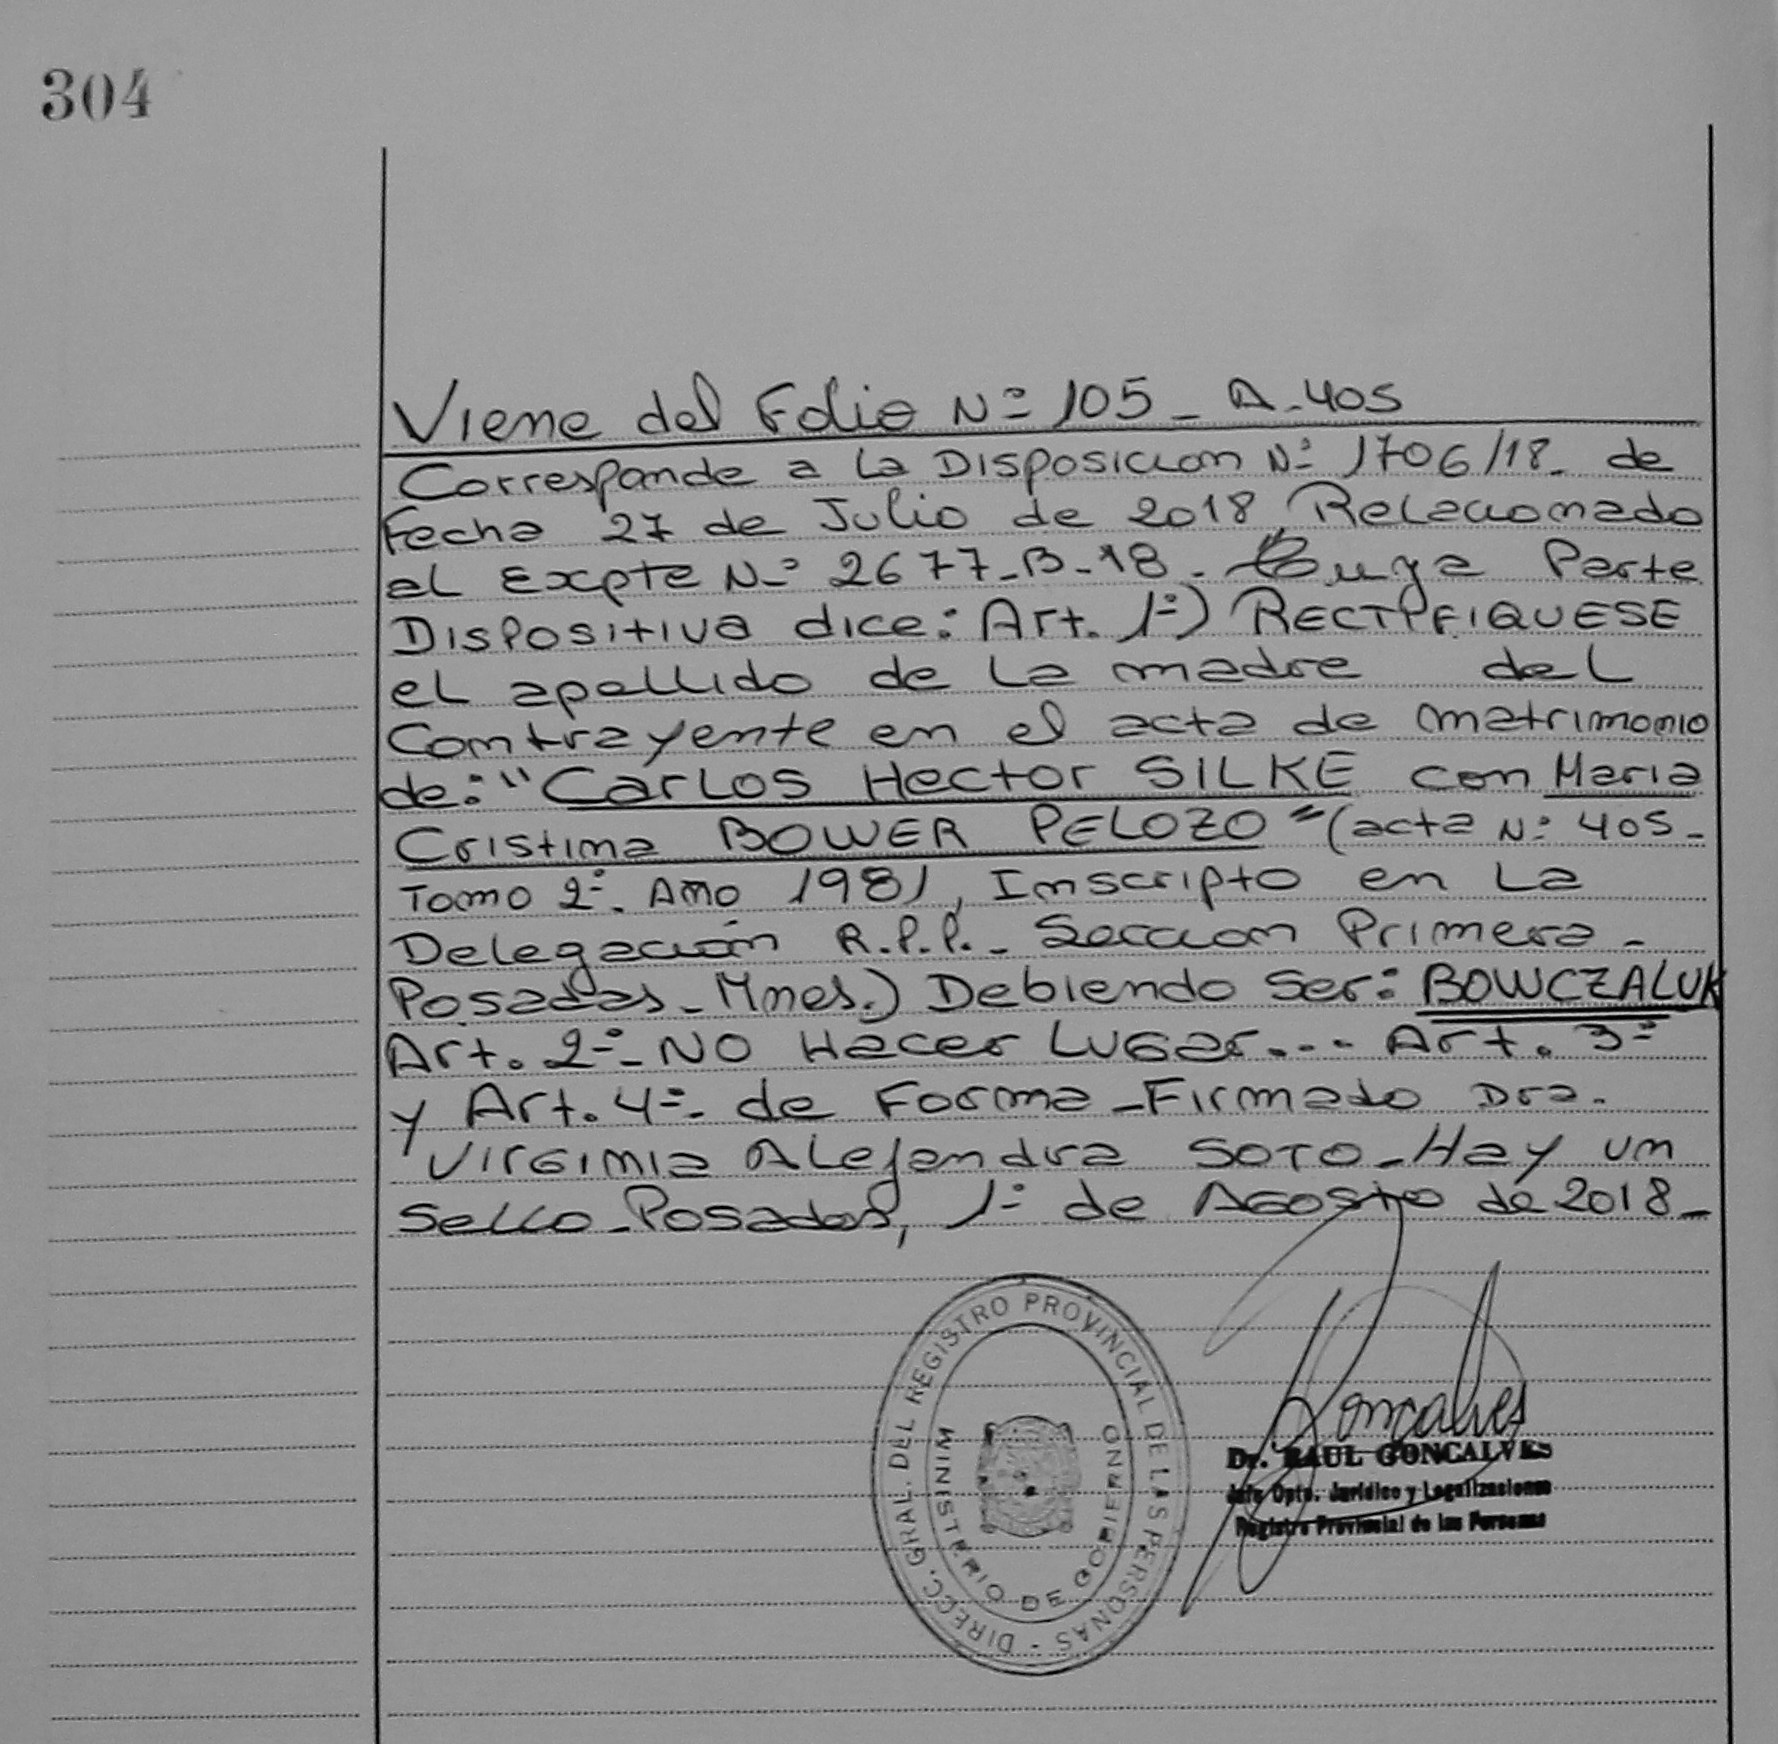 304
Viene del Folio Nº 105 - A-405
Corresponde a la Disposicion Nº 1706/18. de
Fecha 27 de Julio de 2018, Relacionado
al Expte Nº 2677-B-18. Cuya Parte
Dispositiva dice: Art. 1º) RECTIFIQUESE
el apellido de la madre del
Contrayente en el acta de matrimonio
de: "Carlos Hector SILKE con Maria
Cristina BOWER PELOZO" (acta Nº 405-
Tomo 2º. Año 1981, Inscripto en la
Delegación R.P.P.- Seccion Primera -
Posadas - Mnes.) Debiendo Ser: BOWCZALUK
Art. 2º - NO Hacer Lugar... Art. 3º
y Art. 4º. de Forma - Firmado Dra.
Virginia Alejandra SOTO - Hay un
Sello - Posadas, 1º de Agosto de 2018 -
DIRECC. GRAL. DEL REGISTRO PROVINCIAL DE LAS PERSONAS -
MINISTERIO DE GOBIERNO
Goncalves
Dr. RAUL GONCALVES
Jefe Dpto. Jurídico y Legalizaciones
Registro Provincial de las Personas